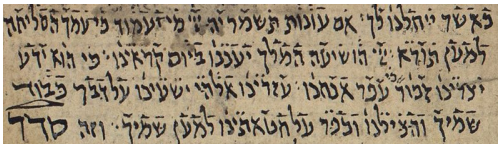 כאשר ייחלנו לך׃ אם עונות תשמר יה יי מי יעמוד כי עמך הסליחה
למען תורא׃ יי הושיעה המלך יעננו ביום קראינו׃ כי הוא ידע
יצרינו זכור כי עפר אנחנו׃ עזרינו אלהי ישעינו על דבר כבוד
שמיך והצילנו וכפר על חטאתינו למען שמיך׃ וזה סדר